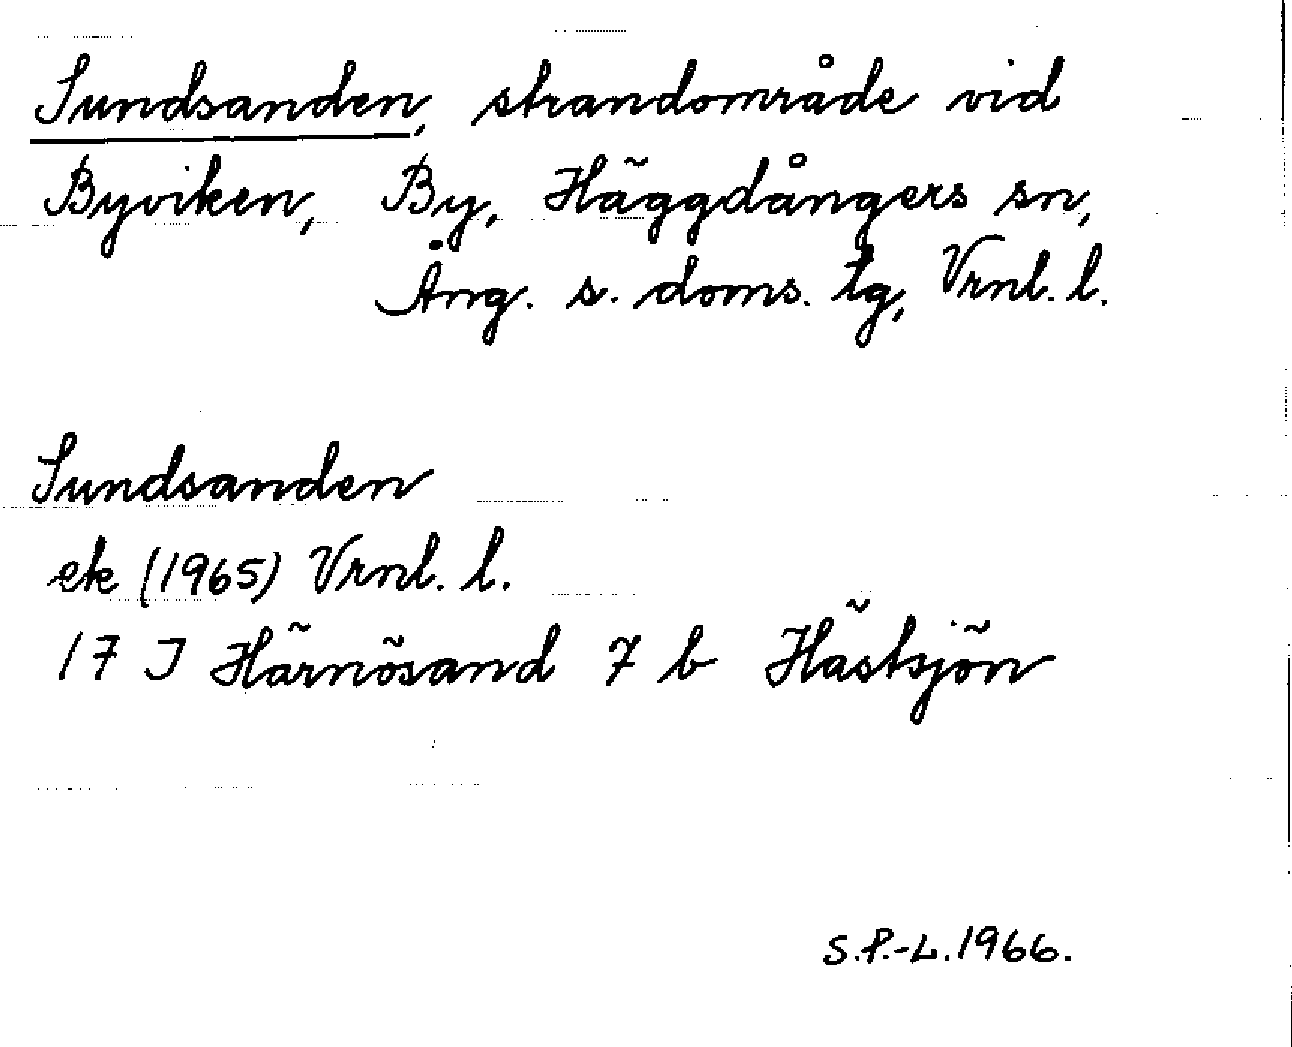 Sundsanden, strandområde vid
Byviken, By, Häggdångers sn,
Ång. s. doms. tg, Vrnl. l.
Sundsanden
ek (1965) Vrnl. l.
17 I Härnösand 7 b Hästsjön
S.P.-L. 1966.